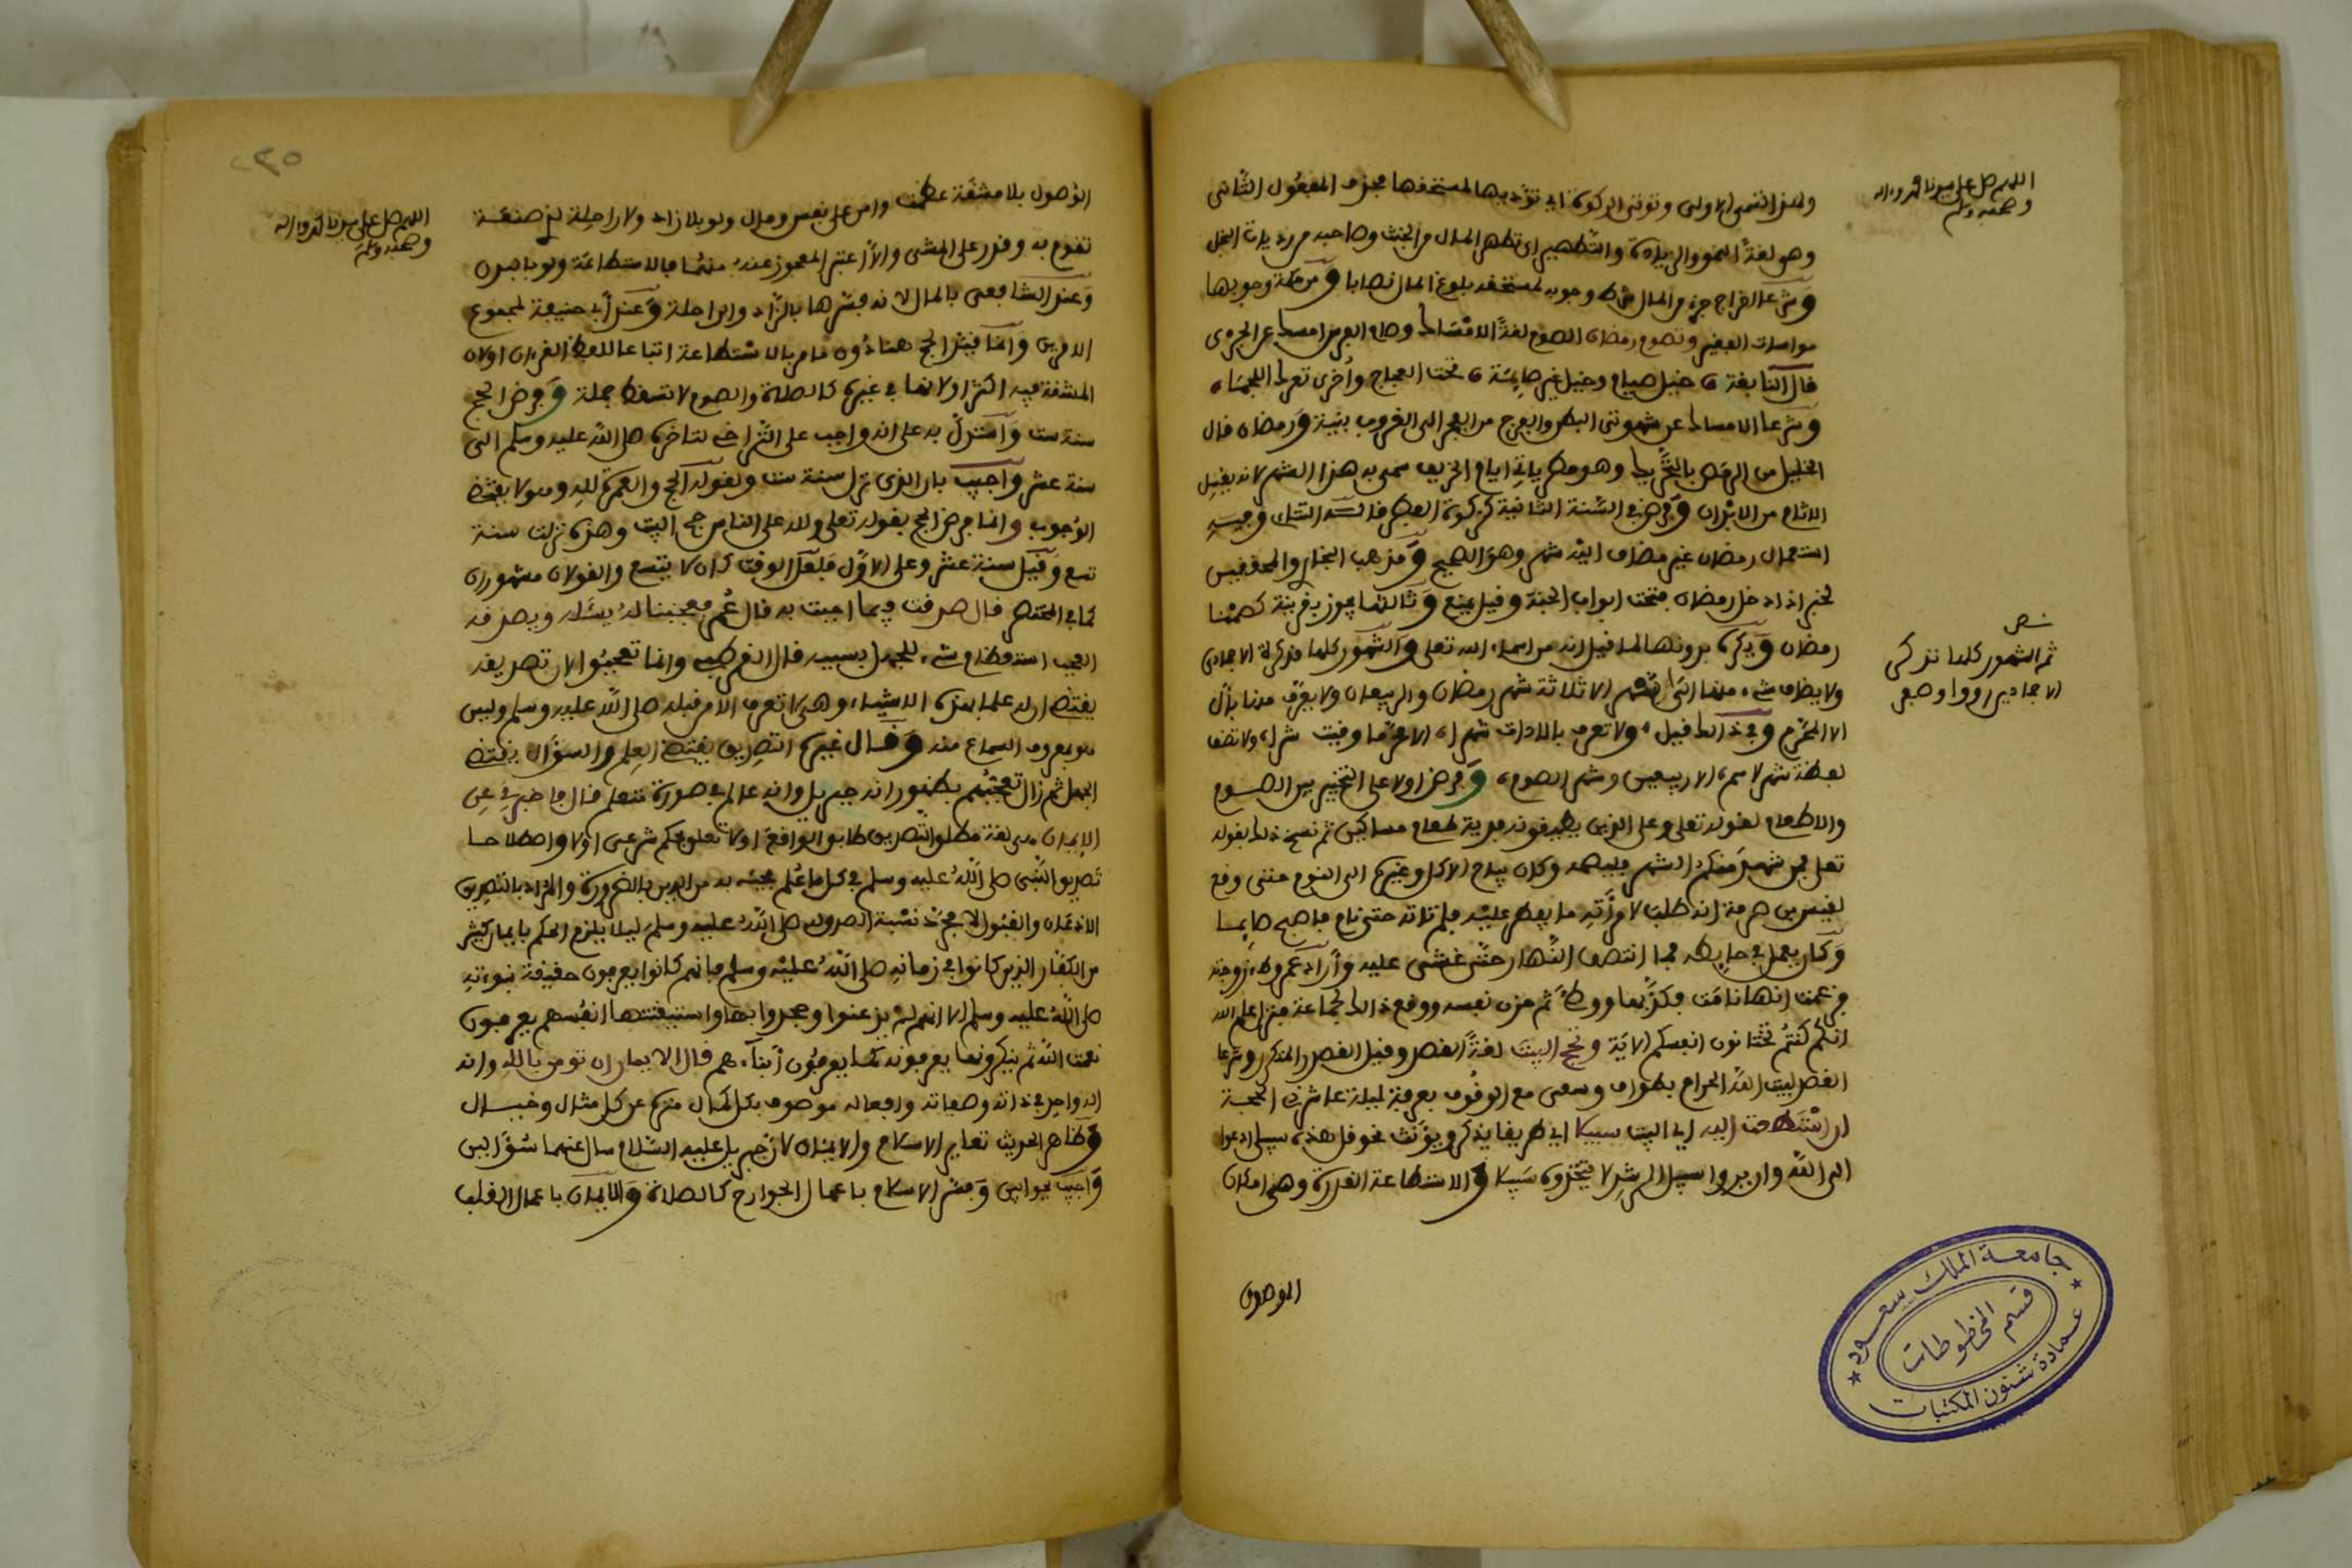 اللهم صل على سيدنا محمد وءاله
وصحبه وسلم
وتوتي الزكوة اي تؤديها لمستحقها فحذف المفعول الثاني
وهي لغة النمو والزيادة والتطهير اي تطهر المال من الخبث وصاحبه من رذيلة البخل
وشرعا اخراج جزء من المال شرط وجوبه لمستحقه بلوغ المال نصابا ومن حكمة وجوبها
مواسات الفقير وتصوم رمضان الصوم لغة الامساك وصام الفرس امسك عن الجري
قال النابغة خيل صيام وخيل غير صائمة تحت العجاج وأخرى تعلك اللجما
وشرعا الامساك عن شهوتي البطن والفرج من الفجر الى الغروب بنية ورمضان قال
الخليل من الرمض بالتحريك وهو مطر ياتي ايام الخريف سمي به هذا الشهر لانه يغسل
الاثام من الابدان وفرض في السنة الثانية كزكوة الفطر وفيه
استعمال رمضان غير مضاف اليه شهر وهو الصحيح ومذهب البخاري والمحققين
لخبر اذا دخل رمضان فتحت ابواب الجنة وقيل يمنع وثالثها يجوز بقرينة كصمنا
رمضان ويكره بدونها لما قيل انه من اسماء الله تعلى والشهور كلها مذكرة الا جمادى
ولا يضاف شيء منها الى شهر الا ثلاثة شهر رمضان والربيعان ولا يعرف منها بأل
الا المحرم وفي ذلك قيل ولا تعرف بالادات شهرا الا محرما وقيت شرا ولا تضف
لفظة شهر لاسم الا ربيعين وشهر الصوم وفرض اولا على التخيير بين الصوم
والاطعام لقوله تعلى وعلى الذين يطيقونه فدية طعام مساكين ثم نسخ ذلك بقوله
تعلى فمن شهد منكم الشهر فليصمه وكان يباح الاكل وغيره الى النوم حتى وقع
لقيس بن صرمة انه طلب لامرأته ما يفطر عليه فلم تاته حتى نام فاصبح صايما
وكان يعمل في حايطه فلما انتصف النهار حتى غشي عليه وأراد عمر وطء زوجته
فزعمت انها نامت فكذبها ووطئ ثم حزن نفسه ووقع ذلك لجماعة فنزل علم الله
انكم كنتم تختانون انفسكم الاية وتحج البيت لغة القصد وقيل القصد المتكرر وشرعا
القصد لبيت الله الحرام بطواف وسعي مع الوقوف بعرفة ليلة عاشر ذي الحجة
ان استطعت اليه اي البيت سبيلا اي طريقا يذكر ويؤنث نحو قل هذه سبيلي ادعوا
الى الله وان يروا سبيل الرشد لا يتخذوه سبيلا والاستطاعة القدرة وهي امكان
ثم الشهور كلها تذكر
الوصول
جامعة الملك سعود
قسم المخطوطات
عمادة شئون المكتبات
٢٣٥
اللهم صل على سيدنا محمد وءاله
وصحبه وسلم
الوصول بلا مشقة عظمت وامن على نفس ومال ولو بلا زاد ولا راحلة لذي صنعة
تقوم به وقدر على المشي والا اعتبر المعجوز عنه منهما فالاستطاعة ولو بالبدن
وعند الشافعي بالمال لانه فسرها بالزاد والراحلة وعند أبي حنيفة لمجموع
الامرين وانما قيد الحج هنا دون ما مر بالاستطاعة اتباعا للفظ القرءان اولان
المشقة فيه اكثر اولانها في غيره كالصلاة والصوم لا تسقط جملة وفرض الحج
سنة ست واستدل به على انه واجب على التراخي لتاخره صلى الله عليه وسلم الى
سنة عشر وأجيب بان الذي نزل سنة ست ولقوله واتموا الحج والعمرة لله وهو لا يقتضي
الوجوب وانما فرض الحج بقوله تعلى ولله على الناس حج البيت وهذه نزلت سنة
تسع وقيل سنة عشر وعلى الاول فلعل الوقت كان لا يتسع والقولان مشهوران
كما في المختصر قال صدقت فيما اجبت به قال عمر فعجبنا له يسئله ويصدقه
العجب استعظام شيء للجهل بسببه قال القرطبي وانما تعجبوا لان تصديقه
يقتضي ان له علما بهذه الاشياء وهي لا تعرف الا من قبله صلى الله عليه وسلم وليس
هو بمعروف السماع منه وقال غيره التصديق يقتضي العلم والسؤال يقتضي
الجهل ثم زال تعجبهم بظهور انه جبريل وانه عالم في صورة متعلم قال فاخبرني عن
الايمان هو لغة مطلق التصديق طابق الواقع اولا تعلق بحكم شرعي اولا واصطلاحا
تصديق النبي صلى الله عليه وسلم في كل ما علم مجيئه به من الدين بالضرورة والمراد بالتصديق
الاذعان والقبول لا مجرد نسبة الصدق له صلى الله عليه وسلم ليلا يلزم الحكم بايمان كثير
من الكفار الذين كانوا في زمانه صلى الله عليه وسلم فانهم كانوا يعرفون حقيقة نبوءته
صلى الله عليه وسلم الا انهم لم يذعنوا وجحدوا بها واستيقنتها انفسهم يعرفون
نعمت الله ثم ينكرونها يعرفونه كما يعرفون أبناءهم قال الايمان ان تومن بالله وانه
اله واحد في ذاته وصفاته وافعاله موصوف بكل كمال منزه عن كل مثال وخيال
وظاهر الحديث تغاير الاسلام والايمان لان جبريل عليه السلام سال عنهما سؤالين
وأجيب بجوابين وفسر الاسلام باعمال الجوارح كالصلاة والايمان باعمال القلب